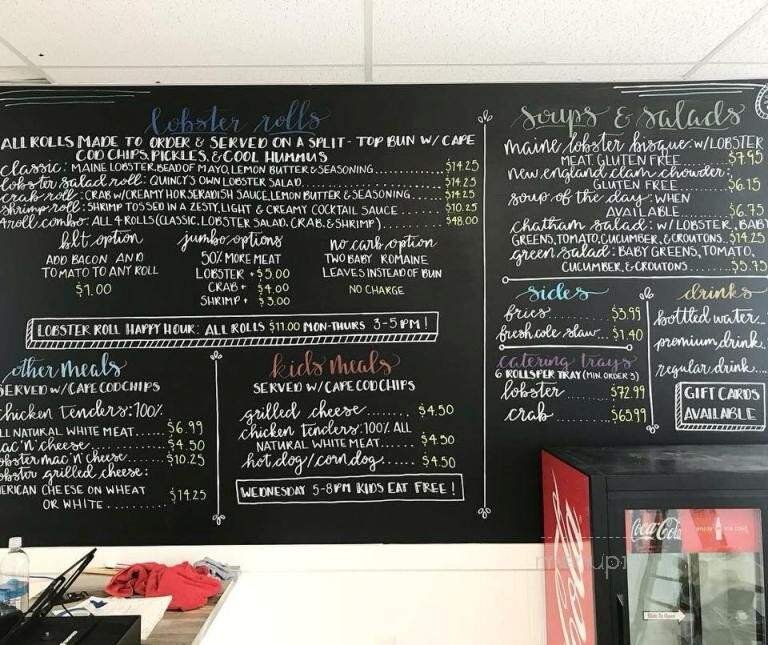 lobster rolls
ALL ROLLS MADE TO ORDER & SERVED ON A SPLIT-TOP BUN W/ CAPE
COD CHIPS, PICKLES, & COOL HUMMUS
classic: MAINE LOBSTER, BEAD OF MAYO, LEMON BUTTER & SEASONING $14.25
lobster salad roll: QUINCY'S OWN LOBSTER SALAD $14.25
crab roll: CRAB W/ CREAMY HORSERADISH SAUCE, LEMON BUTTER & SEASONING $14.25
shrimp roll: SHRIMP TOSSED IN A ZESTY, LIGHT & CREAMY COCKTAIL SAUCE $10.25
4 roll combo: ALL 4 ROLLS (CLASSIC, LOBSTER SALAD, CRAB, & SHRIMP) $48.00
blt option
ADD BACON AND
TOMATO TO ANY ROLL
$1.00
jumbo options
50% MORE MEAT
LOBSTER + $5.00
CRAB + $4.00
SHRIMP + $3.00
no carb option
TWO BABY ROMAINE
LEAVES INSTEAD OF BUN
NO CHARGE
LOBSTER ROLL HAPPY HOUR: ALL ROLLS $11.00 MON-THURS 3-5PM!
other meals
SERVED W/ CAPE COD CHIPS
chicken tenders: 100%
ALL NATURAL WHITE MEAT $6.99
mac 'n' cheese $4.50
lobster mac 'n' cheese $10.25
lobster grilled cheese:
AMERICAN CHEESE ON WHEAT
OR WHITE $14.25
kids meals
SERVED W/ CAPE COD CHIPS
grilled cheese $4.50
chicken tenders: 100% ALL
NATURAL WHITE MEAT $4.50
hot dog/corn dog $4.50
WEDNESDAY 5-8PM KIDS EAT FREE!
soups & salads
maine lobster bisque: W/ LOBSTER
MEAT, GLUTEN FREE $7.95
new england clam chowder:
GLUTEN FREE $6.15
soup of the day: WHEN
AVAILABLE $6.75
chatham salad: W/ LOBSTER, BABY
GREENS, TOMATO, CUCUMBER, & CROUTONS $14.25
green salad: BABY GREENS, TOMATO,
CUCUMBER, & CROUTONS $5.75
sides
fries $3.99
fresh cole slaw $1.40
catering trays
6 ROLLS PER TRAY (MIN. ORDER 3)
lobster $72.99
crab $65.99
drinks
bottled water
premium drink
regular drink
GIFT CARDS
AVAILABLE
Coca-Cola
enjoy
Coca-Cola